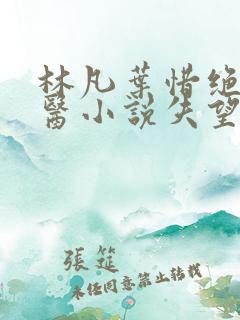 林凡葉惜绝
醫小說失望
張筵
未任同意禁止转载